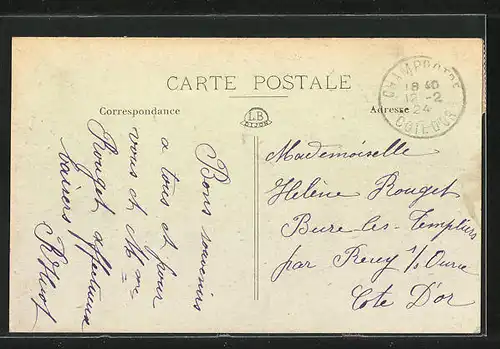 CARTE POSTALE
Correspondance
LB
DIJON
Adresse
CHAMPDOTRE
18 40
12 - 2
24
COTE D'OR
Bons souvenirs
a tous et pour
vous et Mme
Rouget affectueux
baisers
Mademoiselle
Hélène Rouget
Bure-les-Templiers
par Recey s/ Ource
Cote D'or